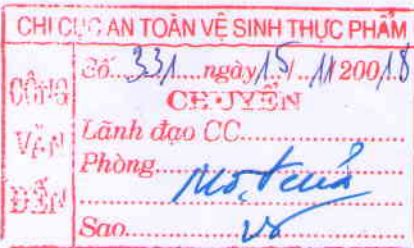 CHI CỤC AN TOÀN VỆ SINH THỰC PHẨM
CÔNG VĂN ĐẾN
Số....331....ngày.15./..11 200.18
CHUYỂN
Lãnh đạo CC..............
Phòng
Sao